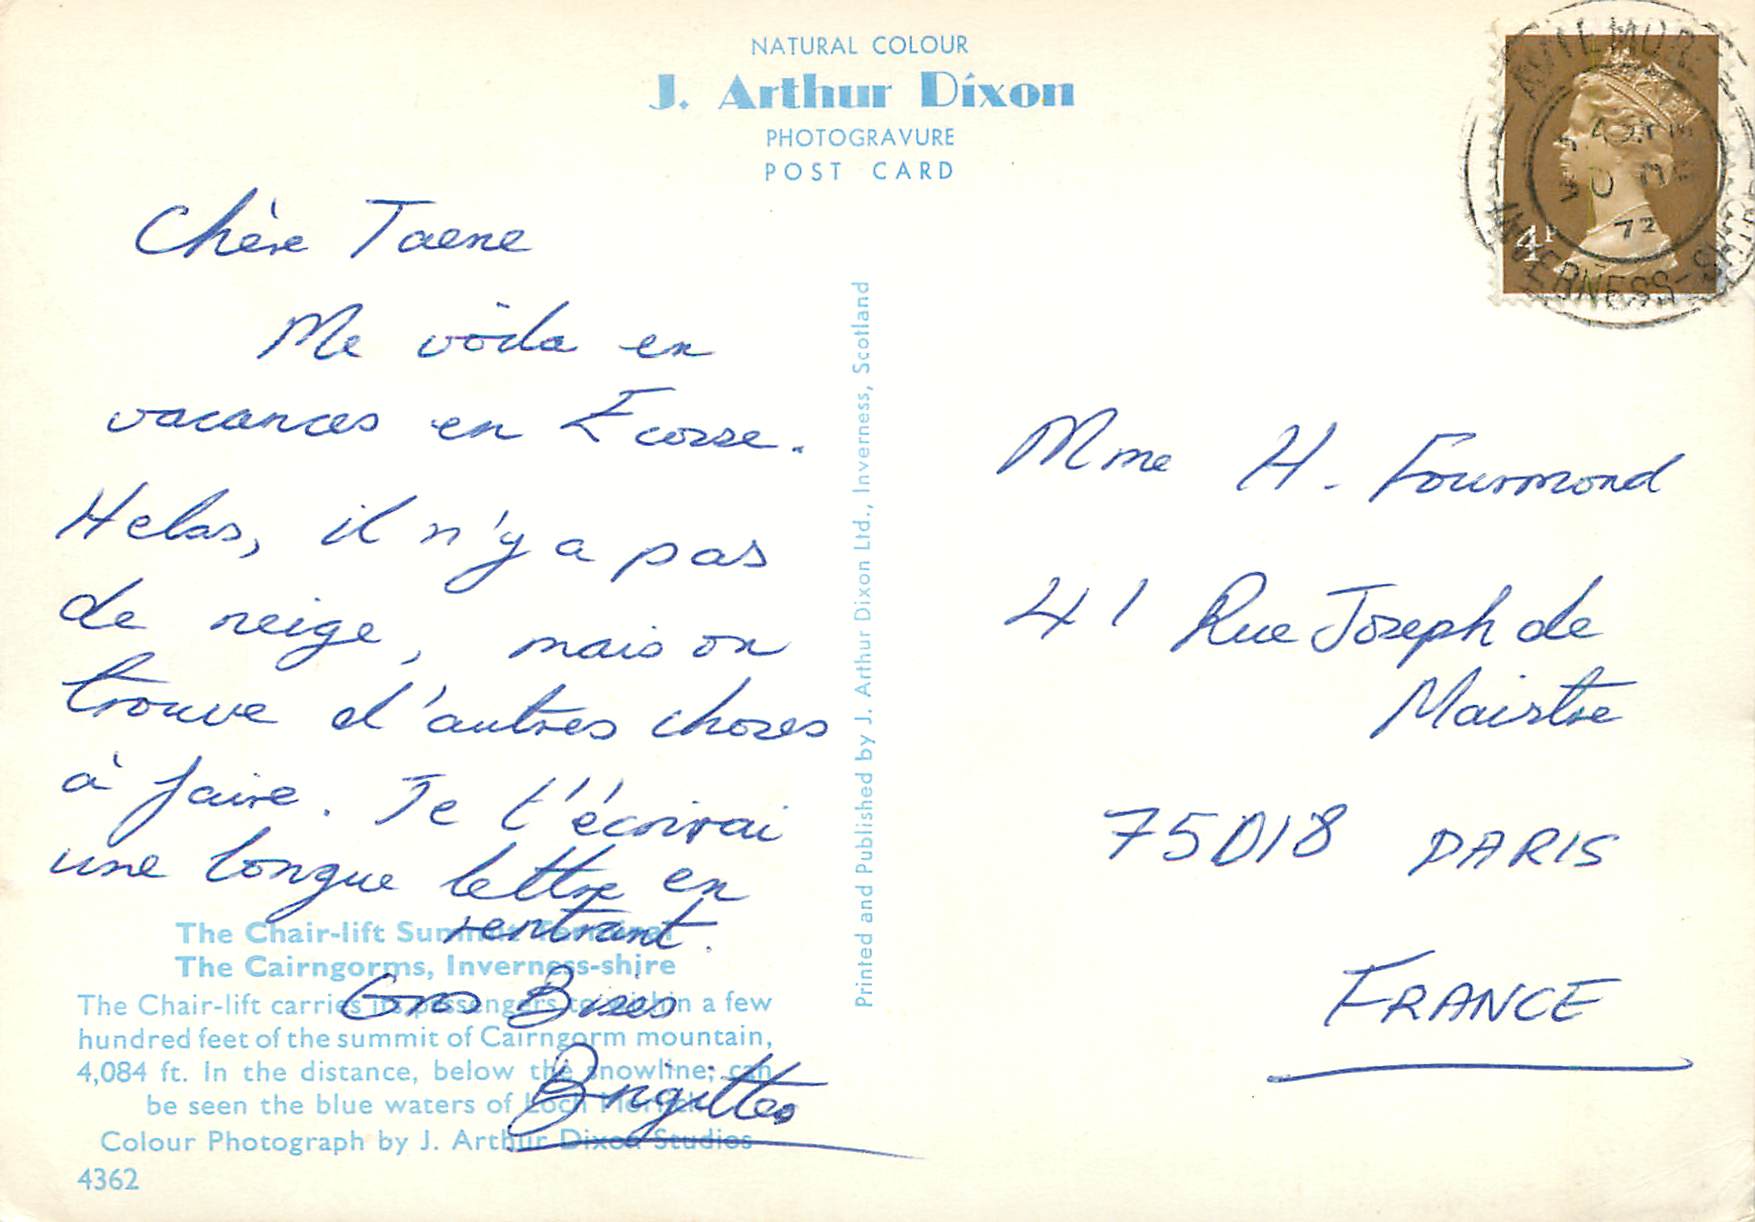 NATURAL COLOUR
J. Arthur Dixon
PHOTOGRAVURE
POST CARD
Chère Taene
Me voila en
vacances en Ecosse.
Helas, il n'y a pas
de neige, mais on
trouve d'autres choses
à faire. Je t'écrirai
une longue lettre en
rentrant.
Gros Bises
Brigitte
The Chair-lift Summit Terminal
The Cairngorms, Inverness-shire
The Chair-lift carries its passengers to within a few
hundred feet of the summit of Cairngorm mountain,
4,084 ft. In the distance, below the snowline, can
be seen the blue waters of Loch Morlich
Colour Photograph by J. Arthur Dixon Studios
4362
Printed and Published by J. Arthur Dixon Ltd., Inverness, Scotland
4P
AVIEMORE
INVERNESS-SHIRE
Mme H. Fourmond
41 Rue Joseph de
Maistre
75018 PARIS
FRANCE